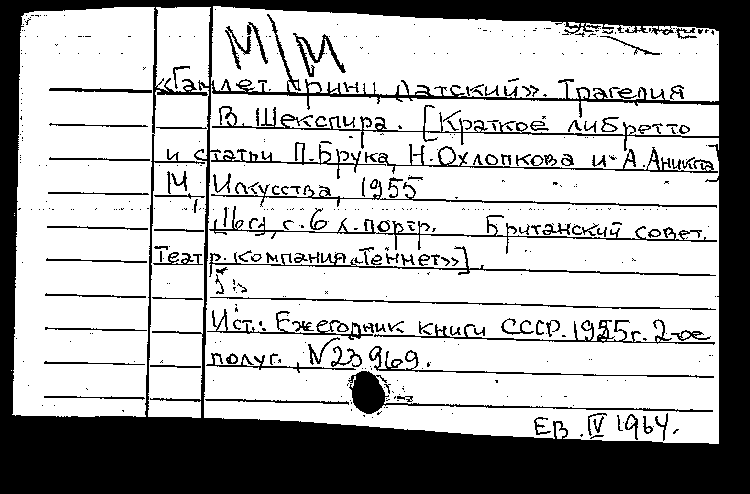 М/М
«Гамлет принц датский». Трагедия
В. Шекспира. [Краткое либретто
и статьи П.Брука, Н.Охлопкова и А.Аникста]
М., Искусства, 1955
16с., с. 6 л. портр. Британский совет.
Театр. компания „Теннет»].
Ист.: Ежегодник книги СССР. 1955г. 2-ое
полуг., №23969.
ЕВ. IV 1964.